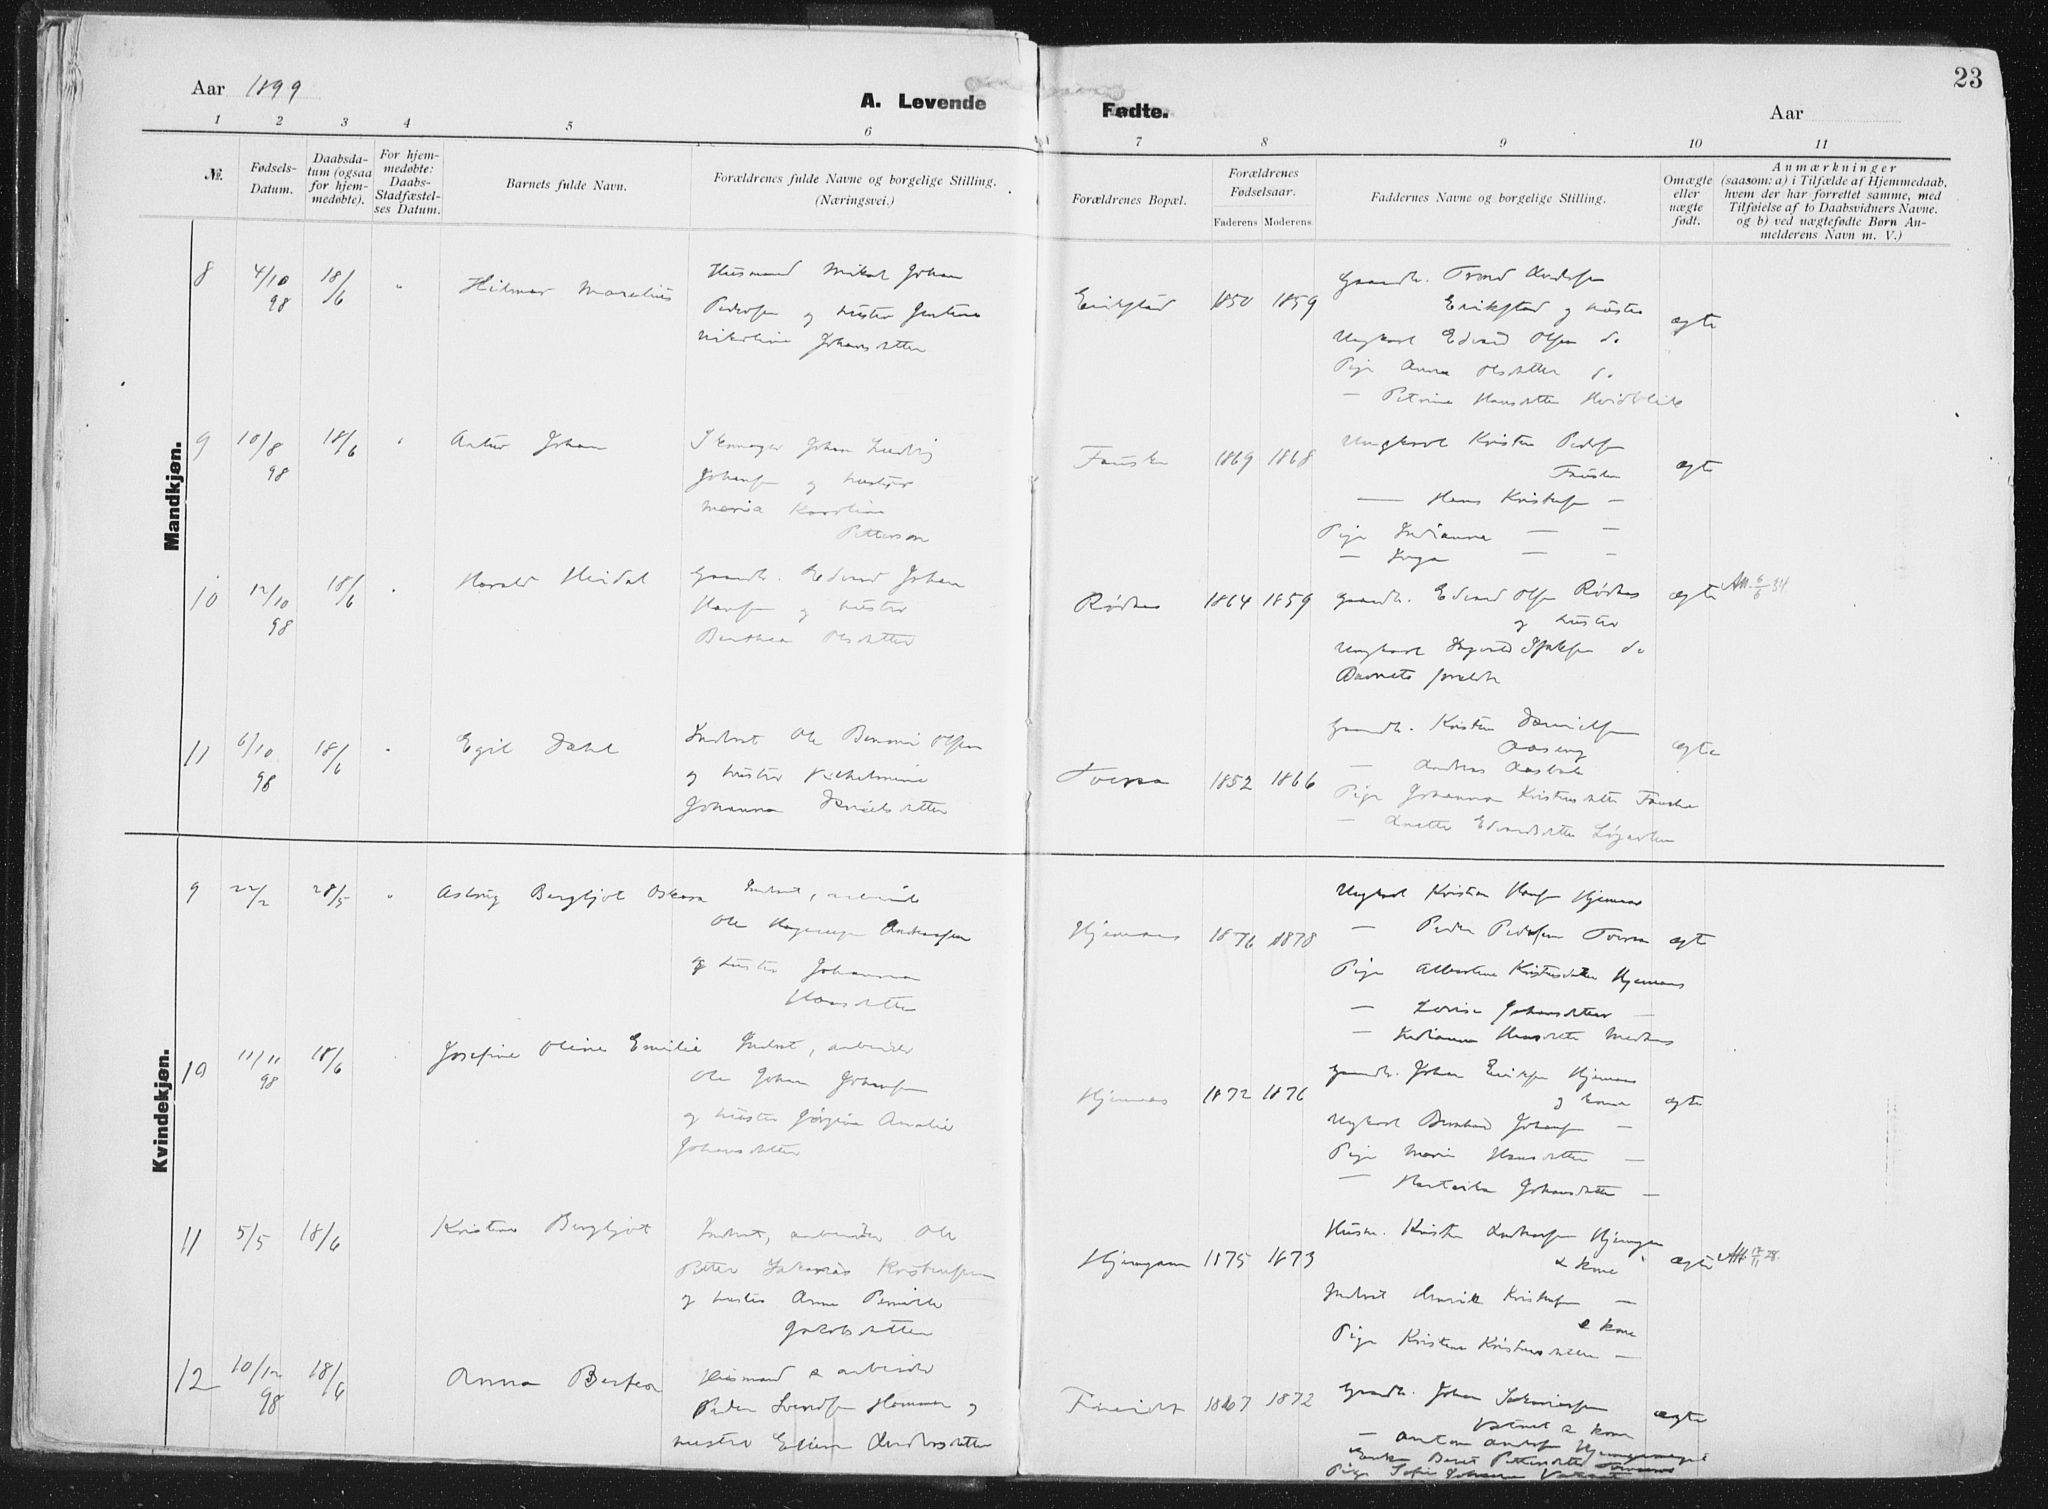 Aar 1899
A. Levende
Fødte.
Aar
23
1 2 3 4 5 6 7 8 9 10 11
№.
Fødsels-
Datum.
Daabsda-
tum (ogsaa
for hjem-
medøbte).
For hjem-
medøbte:
Daabs-
Stadfæstel-
ses Datum.
Barnets fulde Navn.
Forældrenes fulde Navne og borgelige Stilling.
(Næringsvei.)
Forældrenes Bopæl.
Forældrenes
Fødselsaar.
Faderens Moderens
Faddernes Navne og borgelige Stilling.
Omægte
eller
uægte
født.
Anmærkninger
(saasom: a) i Tilfælde af Hjemmedaab,
hvem der har forrettet samme, med
Tilføielse af to Daabsvidners Navne.
og b) ved uægtefødte Børn An-
melderens Navn m. V.)
Mandkjøn.
8 4/10 98 18/6 " Hilmar Marelius
Husmand Mikal Johan
Pedersen og hustru
Nikoline Johansdatter
Erikstad 1850 1859
Gaardbr. Trond Andersen
Erikstad og hustru
Ungkarl Edvard Olsen do
Pige Anna Olsdatter do
— Petrine Hansdatter Hvidblik
ægte
9 10/8 98 18/6 " Artur Johan
Skomager Johan Ludvig
Johansen og hustru
Maria Karoline
Petterson
Fauske 1869 1868
Ungkarl Kristen Pedersen
Fauske
— Hans Kristensen —
Pige Indianna — —
— Inga — —
ægte
10 12/10 98 18/6 " Harald Heidal
Gaardbr. Edvard Johan
Hansen og hustru
Berthea Olsdatter
Rødaas 1864 1859
Gaardbr. Edvard Olsen Rødaas
og hustru
Ungkarl Ingvald do
Barnets forældre
ægte
Att. 6/6 34.
11 6/10 98 18/6 " Egil Dahl
Inderst Ole Benoni Olsen
og hustru Vilhelmine
Johanna Danielsdatter
Tveraa 1852 1866
Gaardbr. Kristen Danielsen
Aaseng
— Andreas Aasbak
Pige Johanna Kristensdatter Fauske
— Anette Edvardsdatter Løgavlen
ægte
Kvindekjøn.
9 22/2 28/5 " Astrug Bergljot Oskara
Inderst, arbeider
Ole Hagerup Andreassen
og hustru Johanna
Hansdatter
Hjemaas 1876 1878
Ungkarl Kristian Hansen Hjemaas
— Peder Pedersen Tveraa
Pige Albertine Kristensdatter Hjemaas
— Lovise Johansdatter —
— Indianna Hansdatter Medaas
ægte
10 11/11 98 18/6 Josefine Oline Emilie
Inderst, arbeider
Ole Johan Johansen
og hustru Jørgine Amalie
Johansdatter
Hjemaas 1872 1876
Gaardbr. Johan Eriksen Hjemaas
og kone
Ungkarl Bernhard Johansen —
Pige Marie Hansdatter —
— Johansdatter —
ægte
11 5/5 18/6 Kristine Bergljot
Inderst, arbeider Ole
Peter Sakarias Kristensen
og hustru Anna Pernille
Jakobsdatter
Hjemgam 1875 1873
Husm. Kristen Andreassen Hjemgam
& kone
Inderst Henrik Kristensen —
& kone
Pige Kristine Kristensdatter —
ægte
Att. 17/11 28.
12 10/12 98 18/6 Anna Bertea
Husmand & arbeider
Peder Hammer og
hustru Andersdatter
1867 1872
Gaardbr. Johan Sakariassen
Vatnet & kone
— Anton Andersen
Enke Beret Pettersdatter
Pige Sofie Johanna
ægte